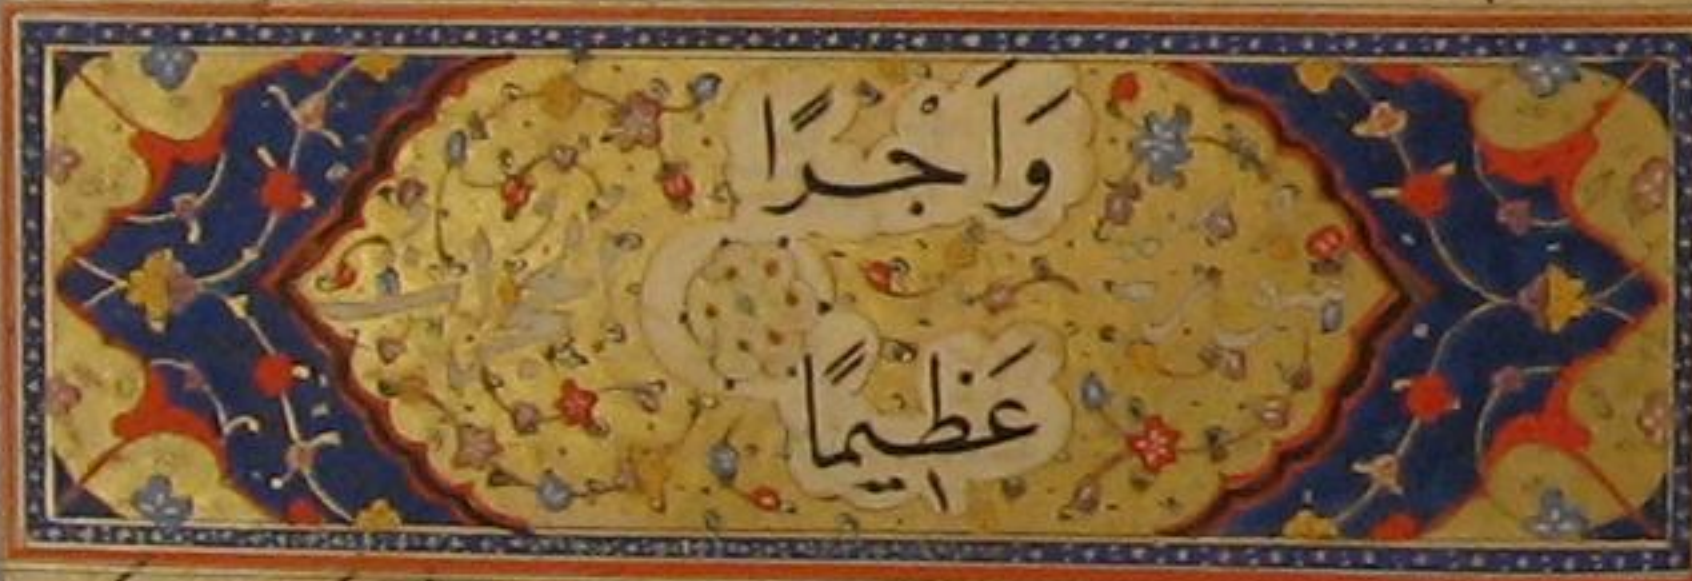 وَاَجْرًا
عَظِيمًا